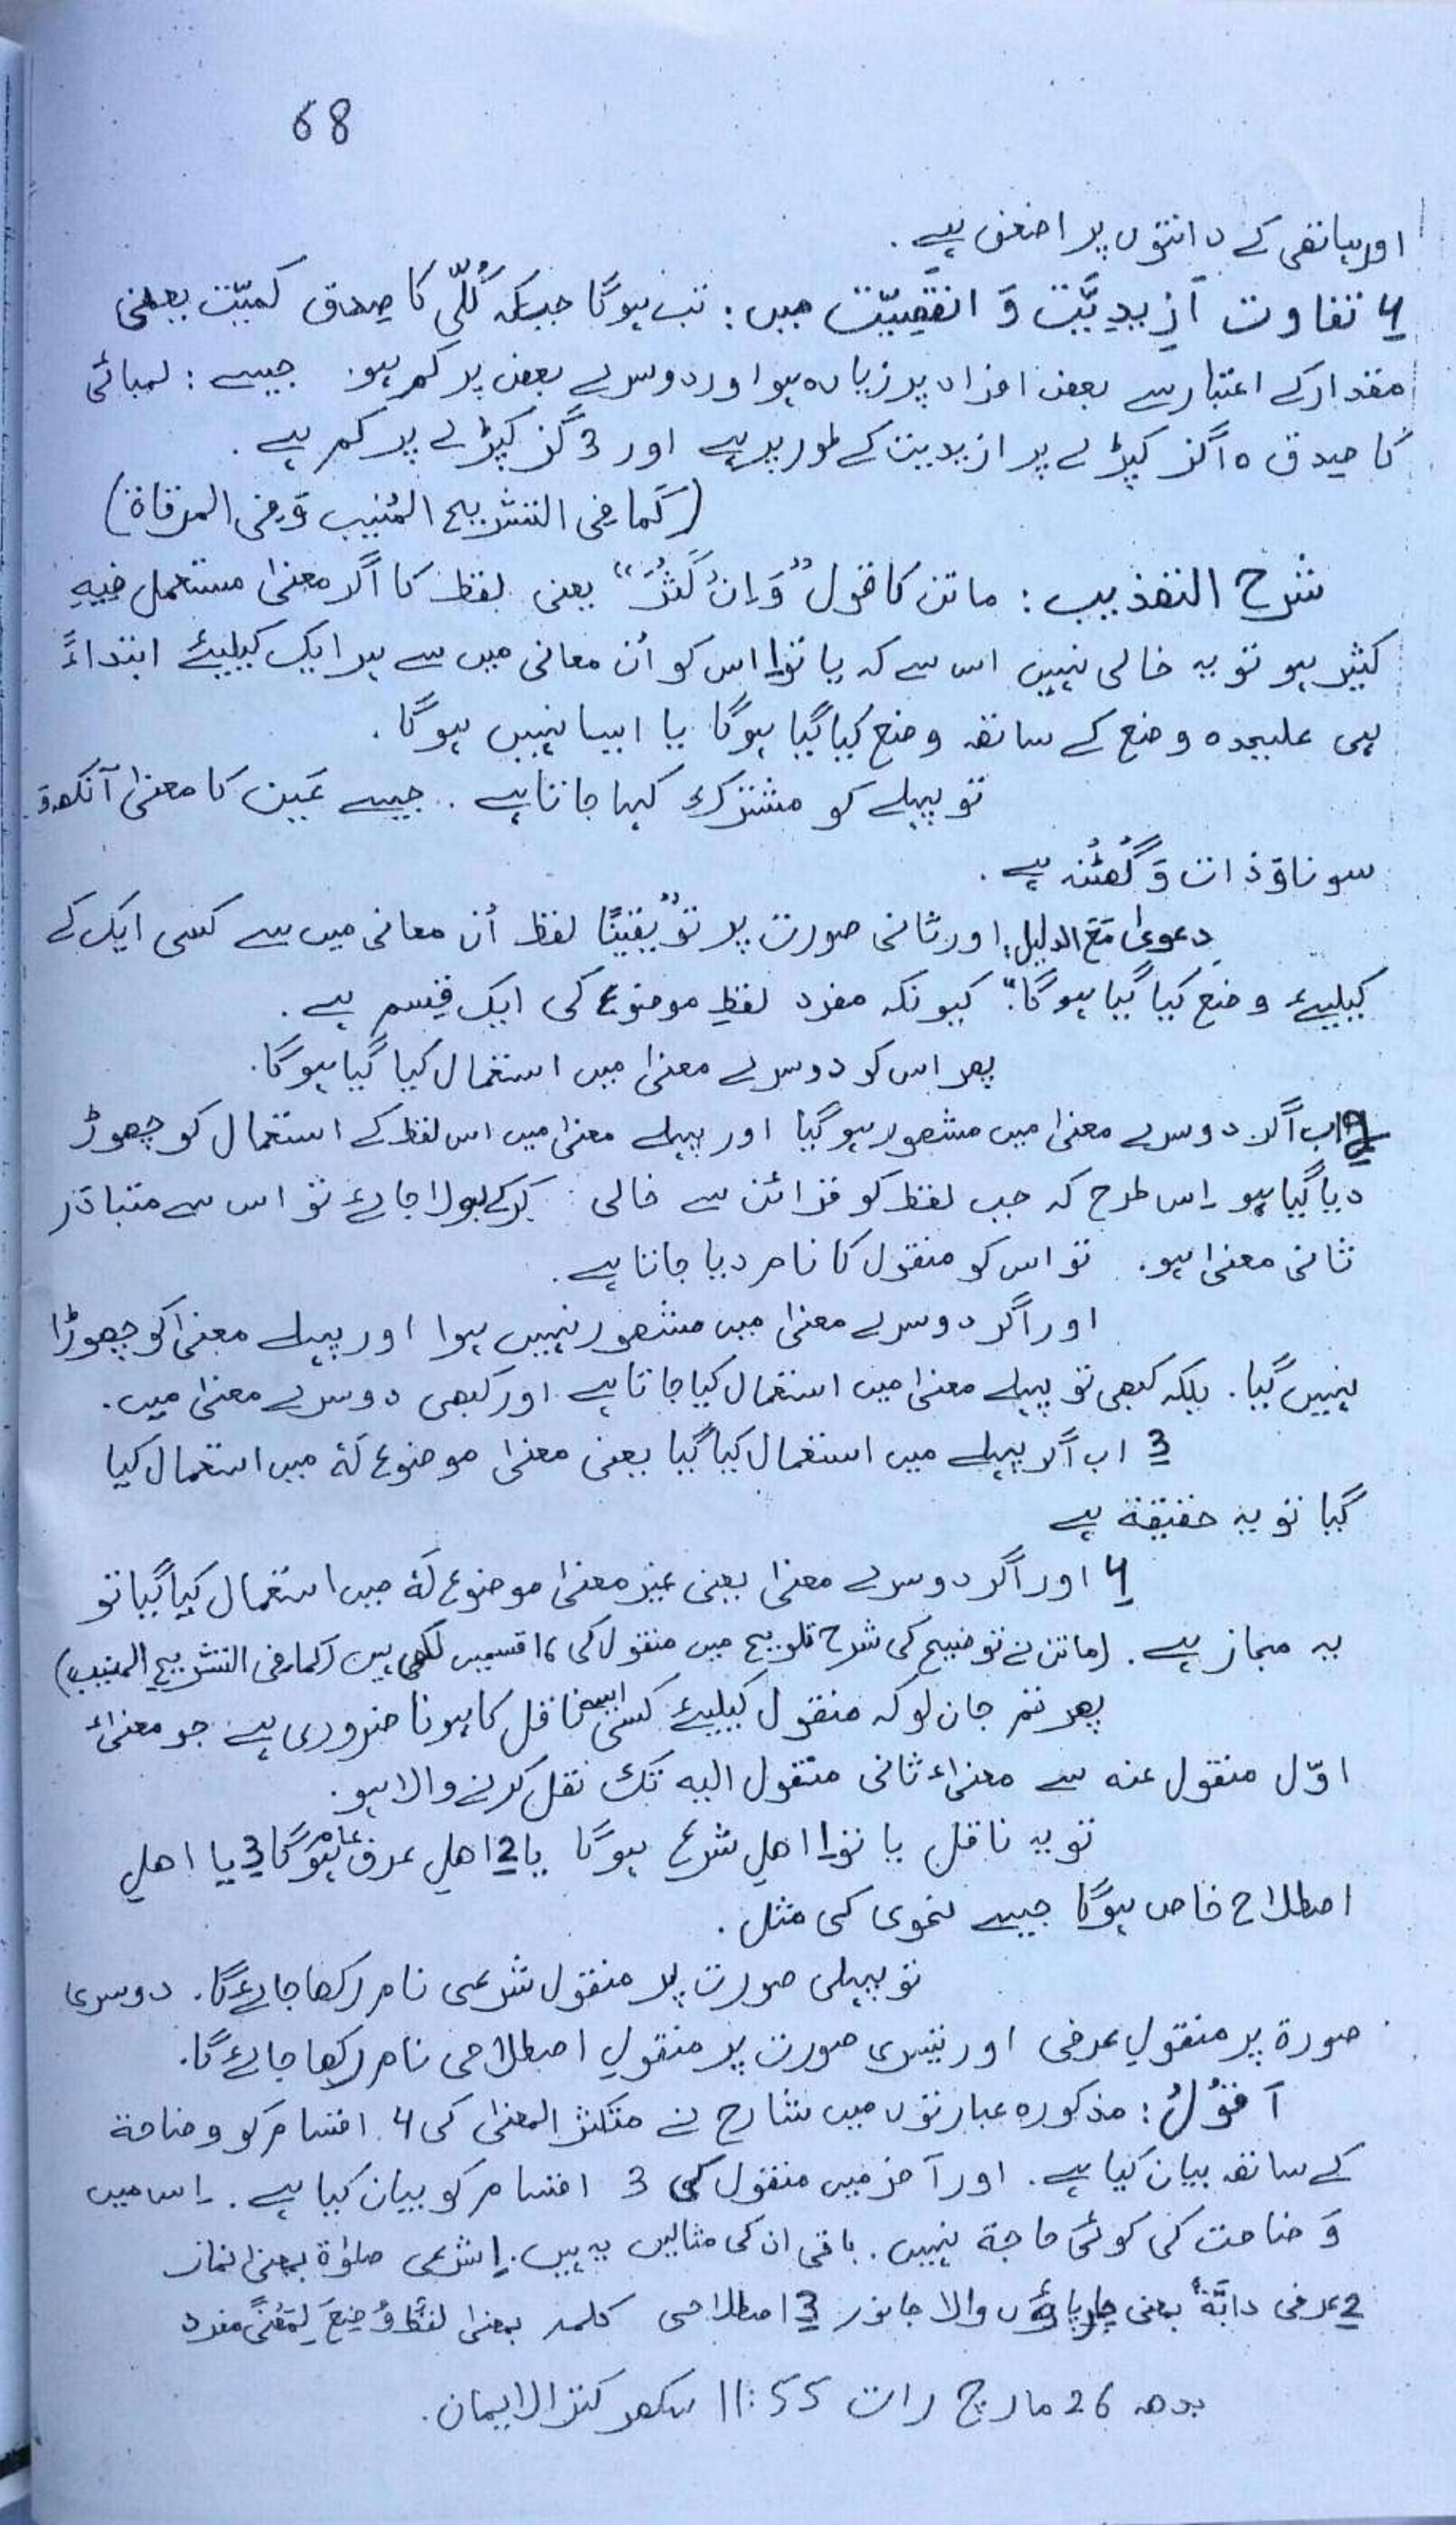 68
اور ہاتھی کے دانتوں پر اضعف ہے .
4 تفاوت اَزیدیَّت وَ انقصیّت میں : تب ہوگا جبکہ کُلّی کا صِدق کمیّت یعنی
مقدار کے اعتبار سے بعض افراد پر زیادہ ہو اور دوسرے بعض پر کم ہو . جیسے : لمبائی
کا صِدق 10 گز کپڑے پر ازیدیت کے طور پر ہے اور 3 گز کپڑے پر کم ہے .
(کَما فی التشریح المُنیب وَ فی المرقاة)
شرح التهذیب : ماتن کا قول ”وَ اِنْ کَثُرَ“ یعنی لفظ کا اگر معنیٰ مستعمل فِیہِ
کثیر ہو تو یہ خالی نہیں اس سے کہ یا تو 1 اس کو اُن معانی میں سے ہر ایک کیلیئے ابتداءً
ہی علیحدہ وضع کے ساتھ وضع کیا گیا ہوگا یا ایسا نہیں ہوگا .
تو پہلے کو مشترک کہا جاتا ہے . جیسے عَین کا معنیٰ آنکھ وَ
سونا وَ ذات وَ گُھٹُنہ ہے .
دعویٰ مَعَ الدلیل : اور ثانی صورت پر تو ”یقینًا لفظ اُن معانی میں سے کسی ایک کے
کیلیئے وضع کیا گیا ہوگا“ کیونکہ مفرد لفظِ موضوع کی ایک قِسم ہے .
پھر اس کو دوسرے معنیٰ میں استعمال کیا گیا ہوگا .
2 اب اگر دوسرے معنیٰ میں مشہور ہوگیا اور پہلے معنیٰ میں اس لفظ کے استعمال کو چھوڑ
دیا گیا ہو اِس طرح کہ جب لفظ کو قرائن سے خالی کرکے بولا جائے تو اس سے متبادَر
ثانی معنیٰ ہو . تو اس کو منقول کا نام دیا جاتا ہے .
اور اگر دوسرے معنیٰ میں مشہور نہیں ہوا اور پہلے معنیٰ کو چھوڑا
نہیں گیا . بلکہ کبھی تو پہلے معنیٰ میں استعمال کیا جاتا ہے اور کبھی دوسرے معنیٰ میں .
3 اب اگر پہلے میں استعمال کیا گیا یعنی معنیٰ موضوع لَہٗ میں استعمال کیا
گیا تو یہ حقیقة ہے
4 اور اگر دوسرے معنیٰ یعنی غیر معنیٰ موضوع لَہٗ میں استعمال کیا گیا تو
یہ مجاز ہے . (ماتن نے توضیح کی شرح تلویح میں منقول کی 16 قسمیں لکھی ہیں (کما فی التشریح المنیب)
پھر تم جان لو کہ منقول کیلیئے کسی ایسے ناقل کا ہونا ضروری ہے جو معنیٰ
اوّل منقول عنہ سے معنیٰ ثانی منقول الیہ تک نقل کرنے والا ہو .
تو یہ ناقل یا تو 1 اھلِ شرع ہوگا یا 2 اھلِ عرفِ عام ہوگا 3 یا اھلِ
اصطلاح خاص ہوگا جیسے نحوی کی مثل .
تو پہلی صورت پر منقول شرعی نام رکھا جائےگا . دوسری
صورة پر منقولِ عرفی اور تیسری صورت پر منقولِ اصطلاحی نام رکھا جائےگا .
اَقُوْلُ : مذکورہ عبارتوں میں شارح نے متکثر المعنیٰ کی 4 اقسام کو وضاحة
کے ساتھ بیان کیا ہے . اور آخر میں منقول کی 3 اقسام کو بیان کیا ہے . اِس میں
وَضاحت کی کوئی حاجة نہیں . باقی ان کی مثالیں یہ ہیں . 1 شرعی صلوٰة بمعنیٰ نماز
2 عرفی دابَّةٌ بمعنی چارپاؤں والا جانور 3 اصطلاحی کلمہ بمعنیٰ لفظٌ وُضِعَ لِمَعْنًی مفرد
بدھ 26 مارچ رات 11:55 سکھر کنزالایمان .